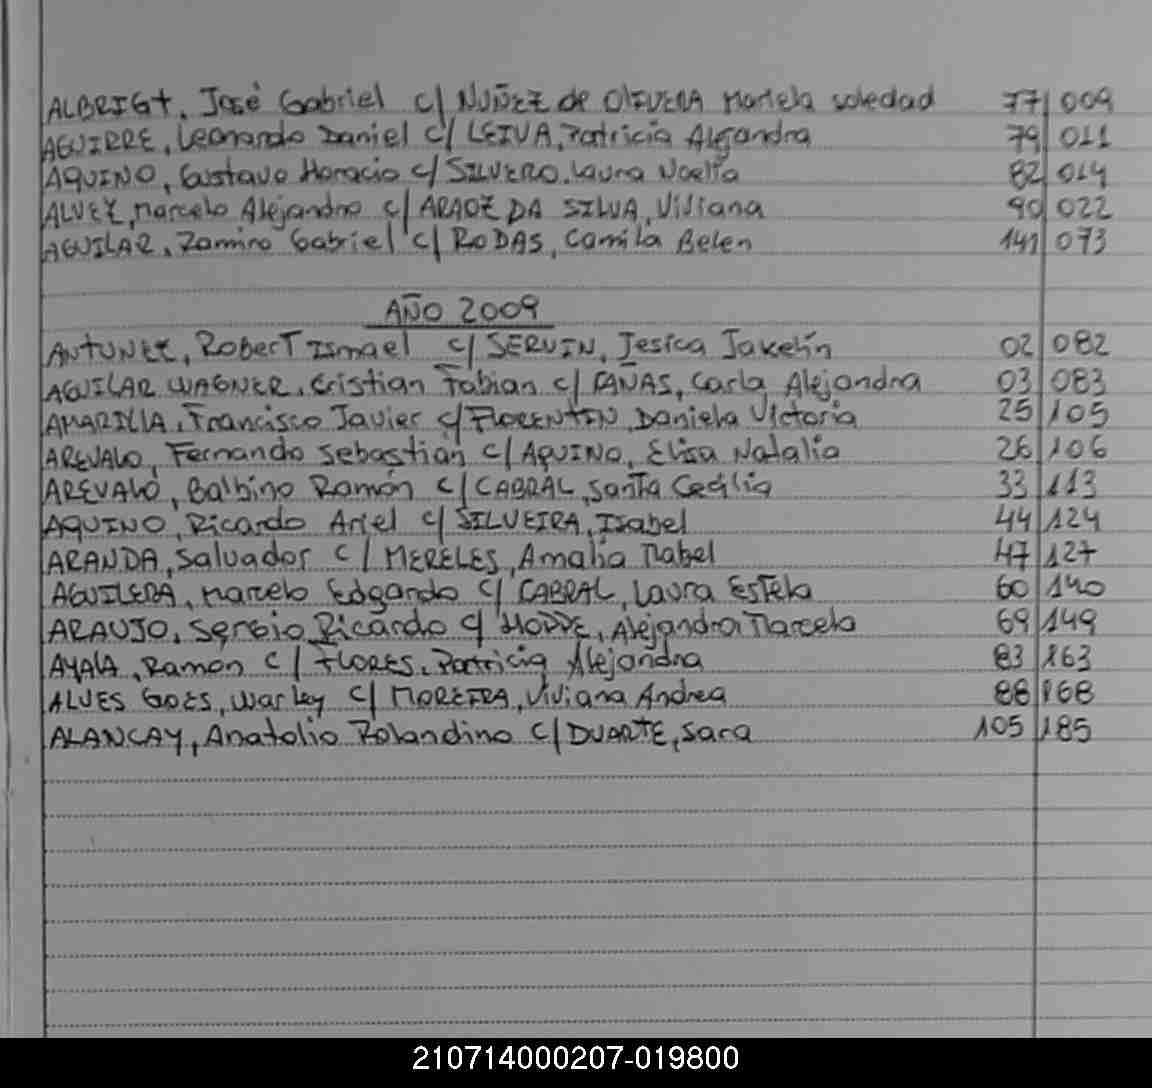 ALBRIGt, José Gabriel c/ NUÑEZ de OLIVERA Mariela soledad 77 009
AGUIRRE, Leonardo Daniel c/ LEIVA, Patricia Alejandra 79 011
AQUINO, Gustavo Horacio c/ SILVERO, Laura Noelia 82 014
ALVEZ, Marcelo Alejandro c/ ARAOZ DA SILVA, Viviana 90 022
AGUILAR, Ramiro Gabriel c/ RODAS, Camila Belen 141 073
AÑO 2009
ANTUNEZ, Robert Ismael c/ SERVIN, Jesica Jakelín 02 082
AGUILAR WAGNER, Cristian Fabian c/ Carla Alejandra 03 083
AMARILLA, Francisco Javier c/ FLORENTIN, Daniela Victoria 25 105
AREVALO, Fernando Sebastián c/ AQUINO, Elisa Natalia 26 106
AREVALO, Balbino Ramón c/ CABRAL, Santa Cecilia 33 113
AQUINO, Ricardo Ariel c/ SILVEIRA, Isabel 44 124
ARANDA, Salvador c/ MERELES, Amalia Mabel 47 127
AGUILERA, Marcelo Edgardo c/ CABRAL, Laura Estela 60 140
ARAUJO, Sergio Ricardo c/ Alejandra Marcela 69 149
AYALA, Ramon c/ FLORES, Patricia Alejandra 83 163
ALVES GOES, Warley c/ MOREIRA, Viviana Andrea 88 168
ALANCAY, Anatolio Rolandino c/ DUARTE, Sara 105 185
210714000207-019800